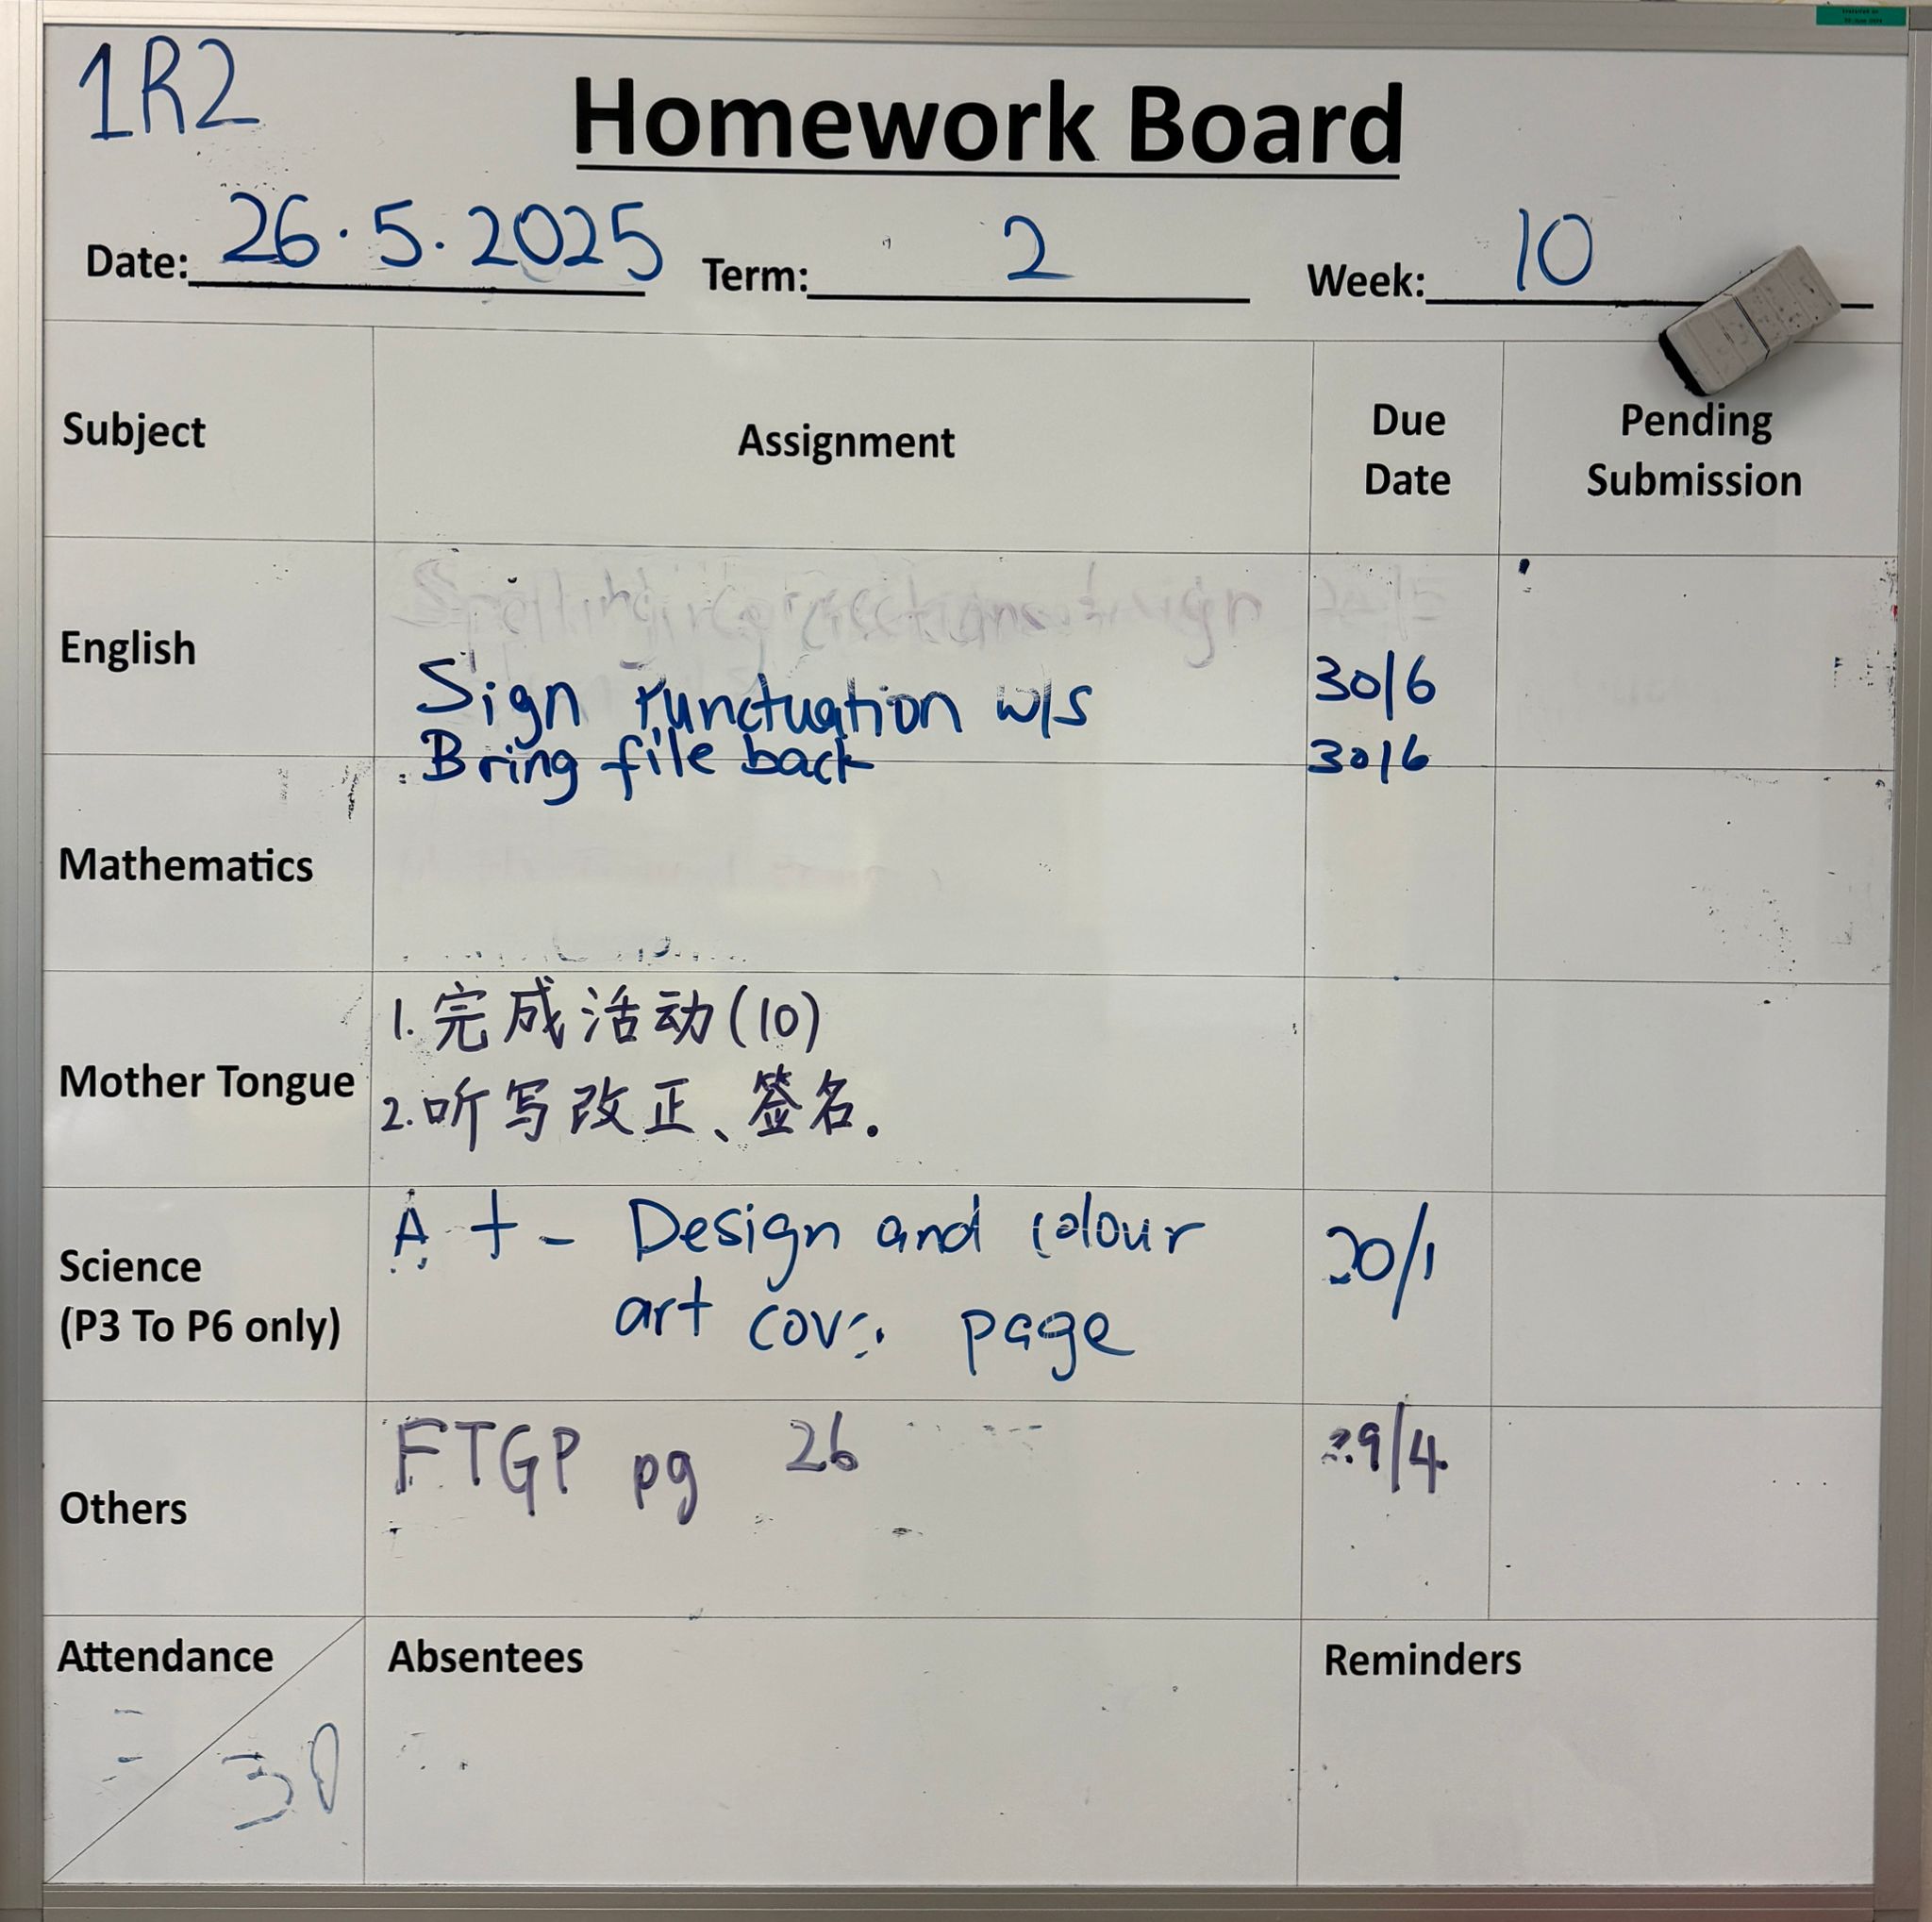 1R2
Homework Board
Date: 26.5.2025 Term: 2 Week: 10
Subject Assignment Due Date Pending Submission
English
Sign Punctuation w/s 30/6
Bring file back 30/6
Mathematics
Mother Tongue
1. 完成活动(10)
2. 听写改正、签名.
Science
(P3 To P6 only)
Design and colour
art page
Others
FTGP pg 26 29/4
Attendance Absentees Reminders
30